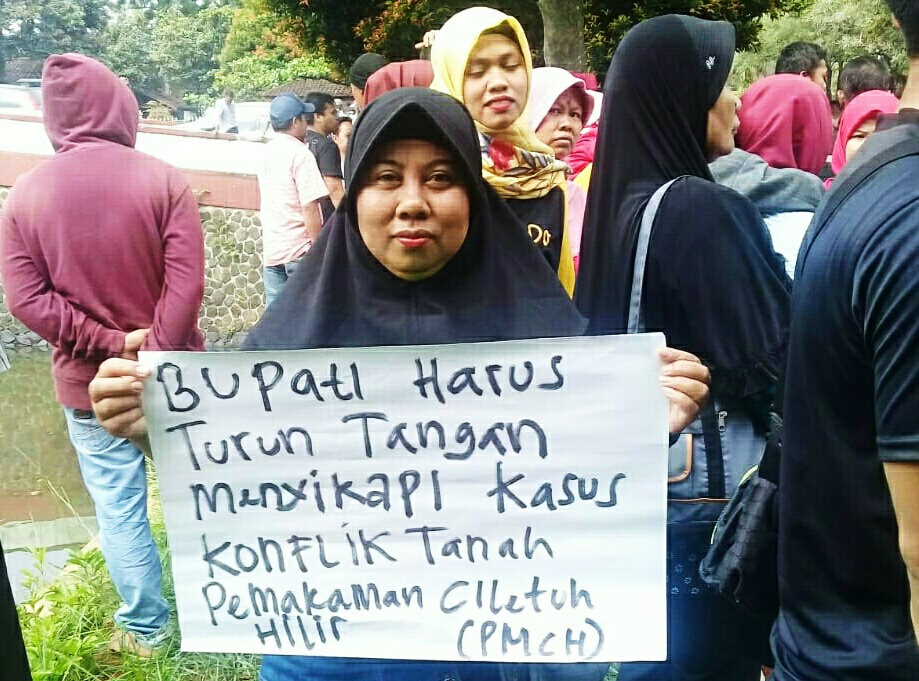 BUPati Harus
Turun Tangan
Menyikapi Kasus
KONFLIK Tanah
PemaKaMan CILetuH
HILIR (PMCH)
Do